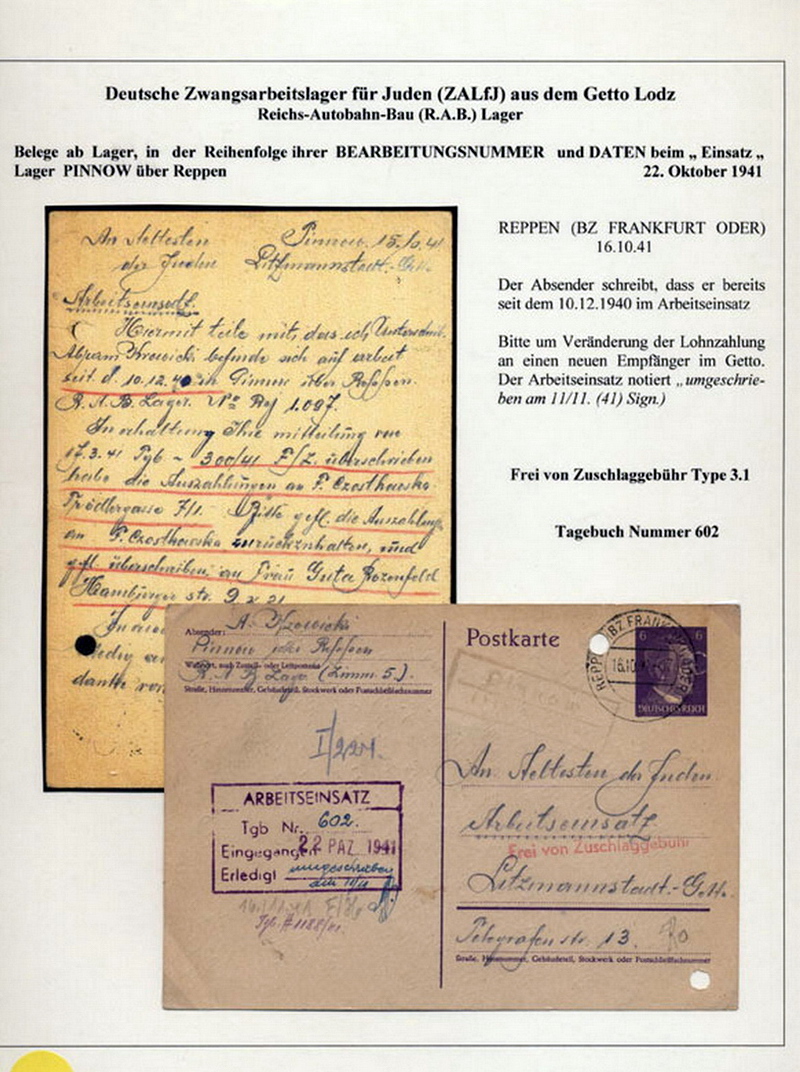 Deutsche Zwangsarbeitslager für Juden (ZALfJ) aus dem Getto Lodz
Reichs-Autobahn-Bau (R.A.B.) Lager
Belege ab Lager, in der Reihenfolge ihrer BEARBEITUNGSNUMMER und DATEN beim „ Einsatz „
Lager PINNOW über Reppen 22. Oktober 1941
An Aeltesten
der Juden
Pinnow, 15.10.41
Litzmannstadt-Getto
Arbeitseinsatz.
Hiermit teile mit, das ich
befinde sich auf arbeit
seit d. 10.12.40 in Pinnow über Reppen.
R.A.B. Lager. No Rej 1.097.
In erhaltung Ihre mitteilung von
17.3.41 Tgb - 300/41 F/Z. überschrieben
habe die Auszahlungen an F. Czosthowska
Trödlergasse 7/1. Bitte gefl. die Auszahlung
an F. Czosthowska zurückznhalten, und
gefl. überschreiben, an Frau Guta Rozenfeld
Hamburger str. 9
REPPEN (BZ FRANKFURT ODER)
16.10.41
Der Absender schreibt, dass er bereits
seit dem 10.12.1940 im Arbeitseinsatz
Bitte um Veränderung der Lohnzahlung
an einen neuen Empfänger im Getto.
Der Arbeitseinsatz notiert „umgeschrie-
ben am 11/11. (41) Sign.)
Frei von Zuschlaggebühr Type 3.1
Tagebuch Nummer 602
Absender:
Pinnow über Reppen
Wohnort, auch Zustell- oder Leitpostamt
R.A.B. Lager (Zimm 5.)
Straße, Hausnummer, Gebäudeteil, Stockwerk oder Postschließfachnummer
I/221.
ARBEITSEINSATZ
Tgb Nr. 602.
Eingegangen 22 PAZ 1941
Erledigt umgeschrieben
Postkarte
6 6
DEUTSCHES REICH
16.10.
An Aeltesten der Juden
Arbeitseinsatz
Frei von Zuschlaggebühr
Litzmannstadt-Getto.
Telegrafen str. 13.
Straße, Hausnummer, Gebäudeteil, Stockwerk oder Postschließfachnummer